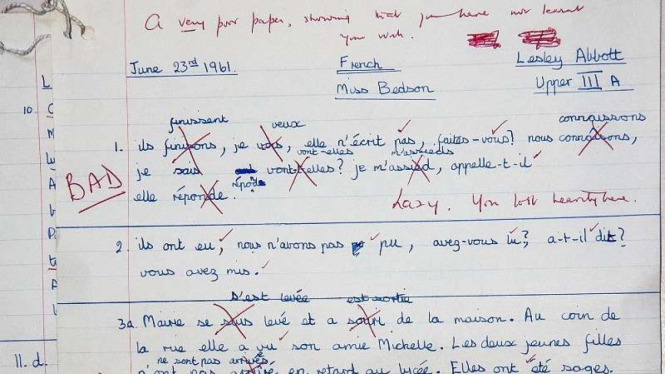 A very poor paper, showing that you have not learnt
your work.
June 23rd 1961. French Lesley Abbott
Miss Bedson Upper III A
finissent veux connaissons
1. ils finissons, je vois, elle n'écrit pas, faites-vous? nous connaisons,
vont-elles m'assieds
je sais vont-elles? je m'assied, appelle-t-il
BAD
elle réponde. répode
Lazy. You lost heavily here.
2. ils ont eu, nous n'avons pas pu, avez-vous lu?, a-t-il dit?
vous avez mis.
s'est levée est sortie
3a. Marie se suis levé et a souri de la maison. Au coin de
la rue elle a vu son amie Michelle. Les deux jeunes filles
ne sont pas arrivés
n'ont pas en retard au lycée. Elles ont été sages.
10.
11. d.